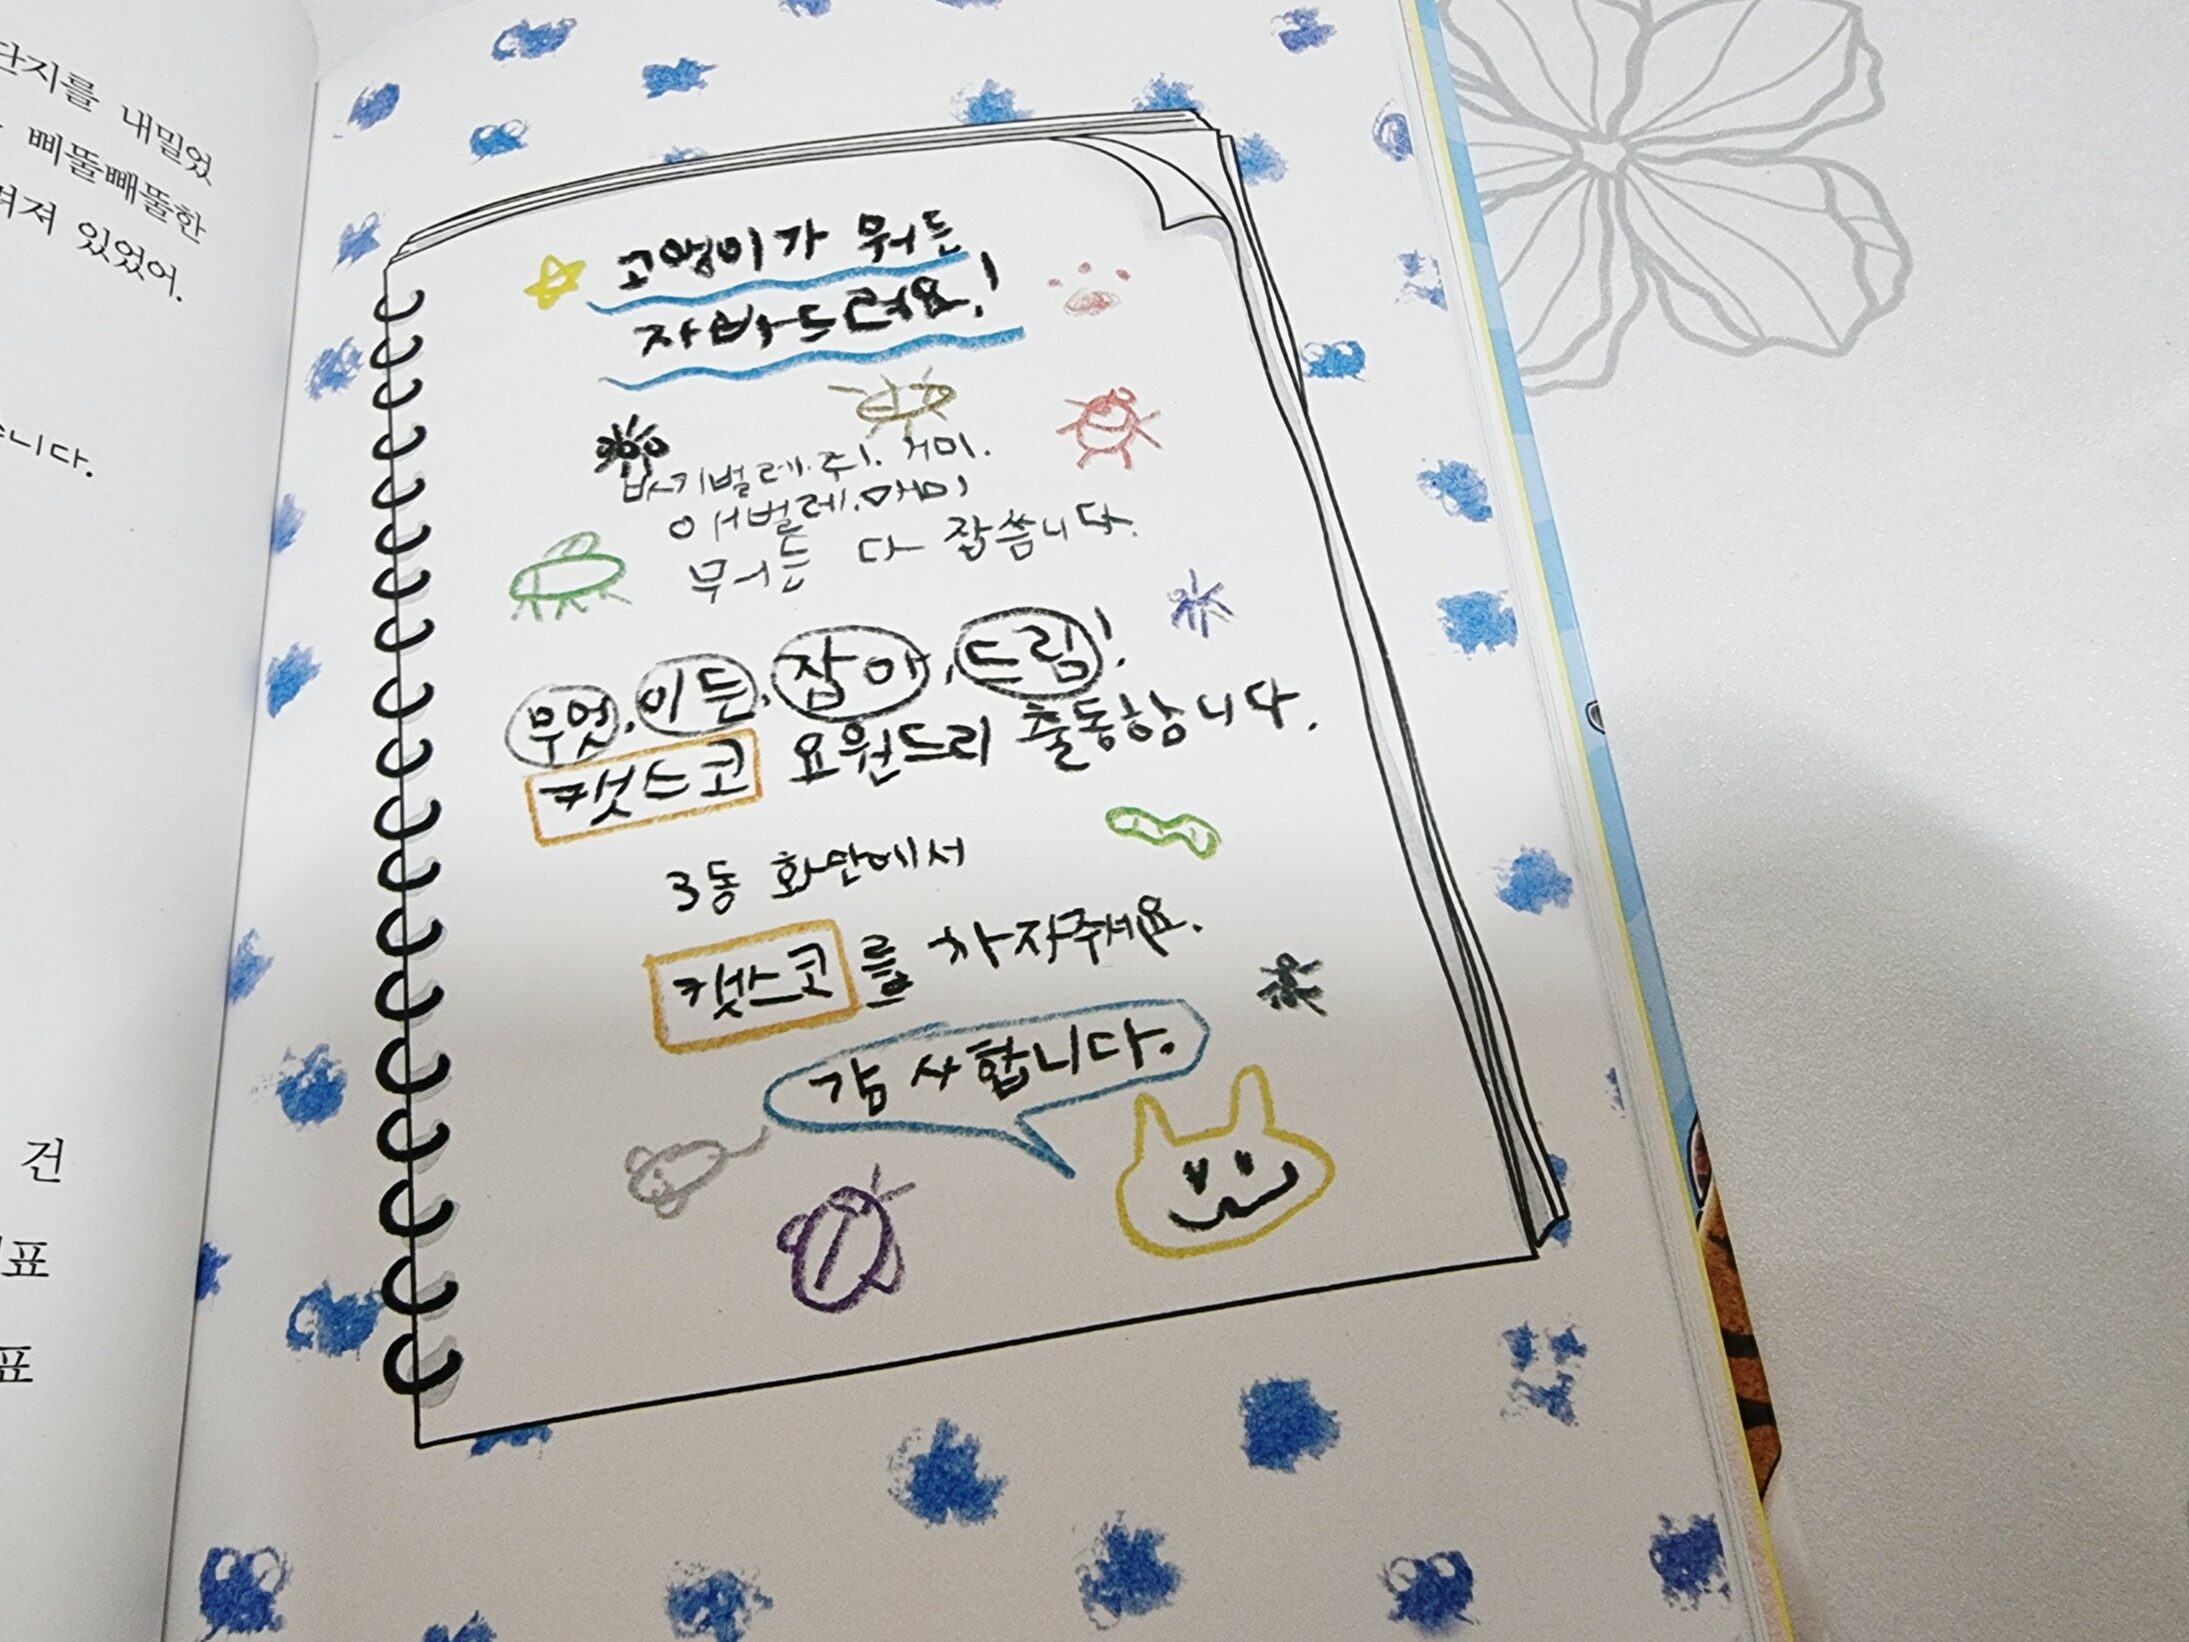 단지를 내밀었
삐뚤빼뚤한
져 있었어.
습니다.
건
표
표
고앵이가 뭐든
자바드려요!
바키벌레.주1. 거미.
애벌레.매미
무어든 다 잡씀니다.
무엇.이든.잡아.드림!
캣스코 요원드리 출동함니다.
3동 화단에서
캣스코를 차자주세요.
감사합니다.